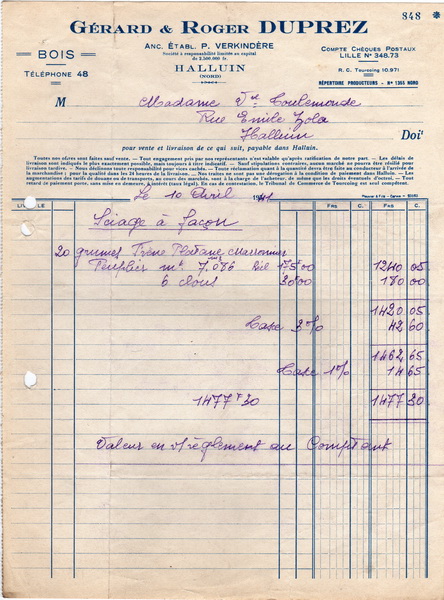 848 *
GÉRARD & ROGER DUPREZ
ANC. ÉTABL. P. VERKINDÈRE
Société à responsabilité limitée au capital
de 2.500.000 fr.
HALLUIN
(NORD)
BOIS
TÉLÉPHONE 48
COMPTE CHÈQUES POSTAUX
LILLE No 348.73
R. C. Tourcoing 10.971
RÉPERTOIRE PRODUCTEURS - No 1355 NORD
M Madame Vve Coulemonde
Rue Emile Zola
Halluin Doit
pour vente et livraison de ce qui suit, payable dans Halluin.
Toutes nos offres sont faites sauf vente. — Tout engagement pris par nos représentants n'est valable qu'après ratification de notre part. — Les délais de
livraison sont indiqués le plus exactement possible, mais toujours à titre indicatif. — Sauf stipulations contraires, aucune marche ne pourra être résilié pour
livraison tardive. — Nous déclinons toute responsabilité pour vices cachés. — Toute réclamation quant à la quantité devra être faite au conducteur à l'arrivée de
la marchandise ; pour la qualité dans les 24 heures de la livraison. — Nos traites ne sont pas une dérogation à la condition de paiement dans Halluin. — Les
augmentations des tarifs de douane ou de transports, sont à la charge de l'acheteur, de même que les droits éventuels d'octroi. — Tout
retard de paiement porte, sans mise en demeure, à intérêt (taux légal). En cas de contestation, le Tribunal de Commerce de Tourcoing est seul compétent.
Le 10 Avril 1941
LIVRÉ LE Frs C. Frs C.
Sciage à façon
20 grumes Frêne Platane Marronnier
Peuplier m3 7.086 bil 175.00 1240 05
6 clous 30.00 180 00
1420 05
Taxe 3% 42 60
1462 65
Taxe 1% 14 65
1477 F 30 1477 30
Valeur en v/règlement au Comptant